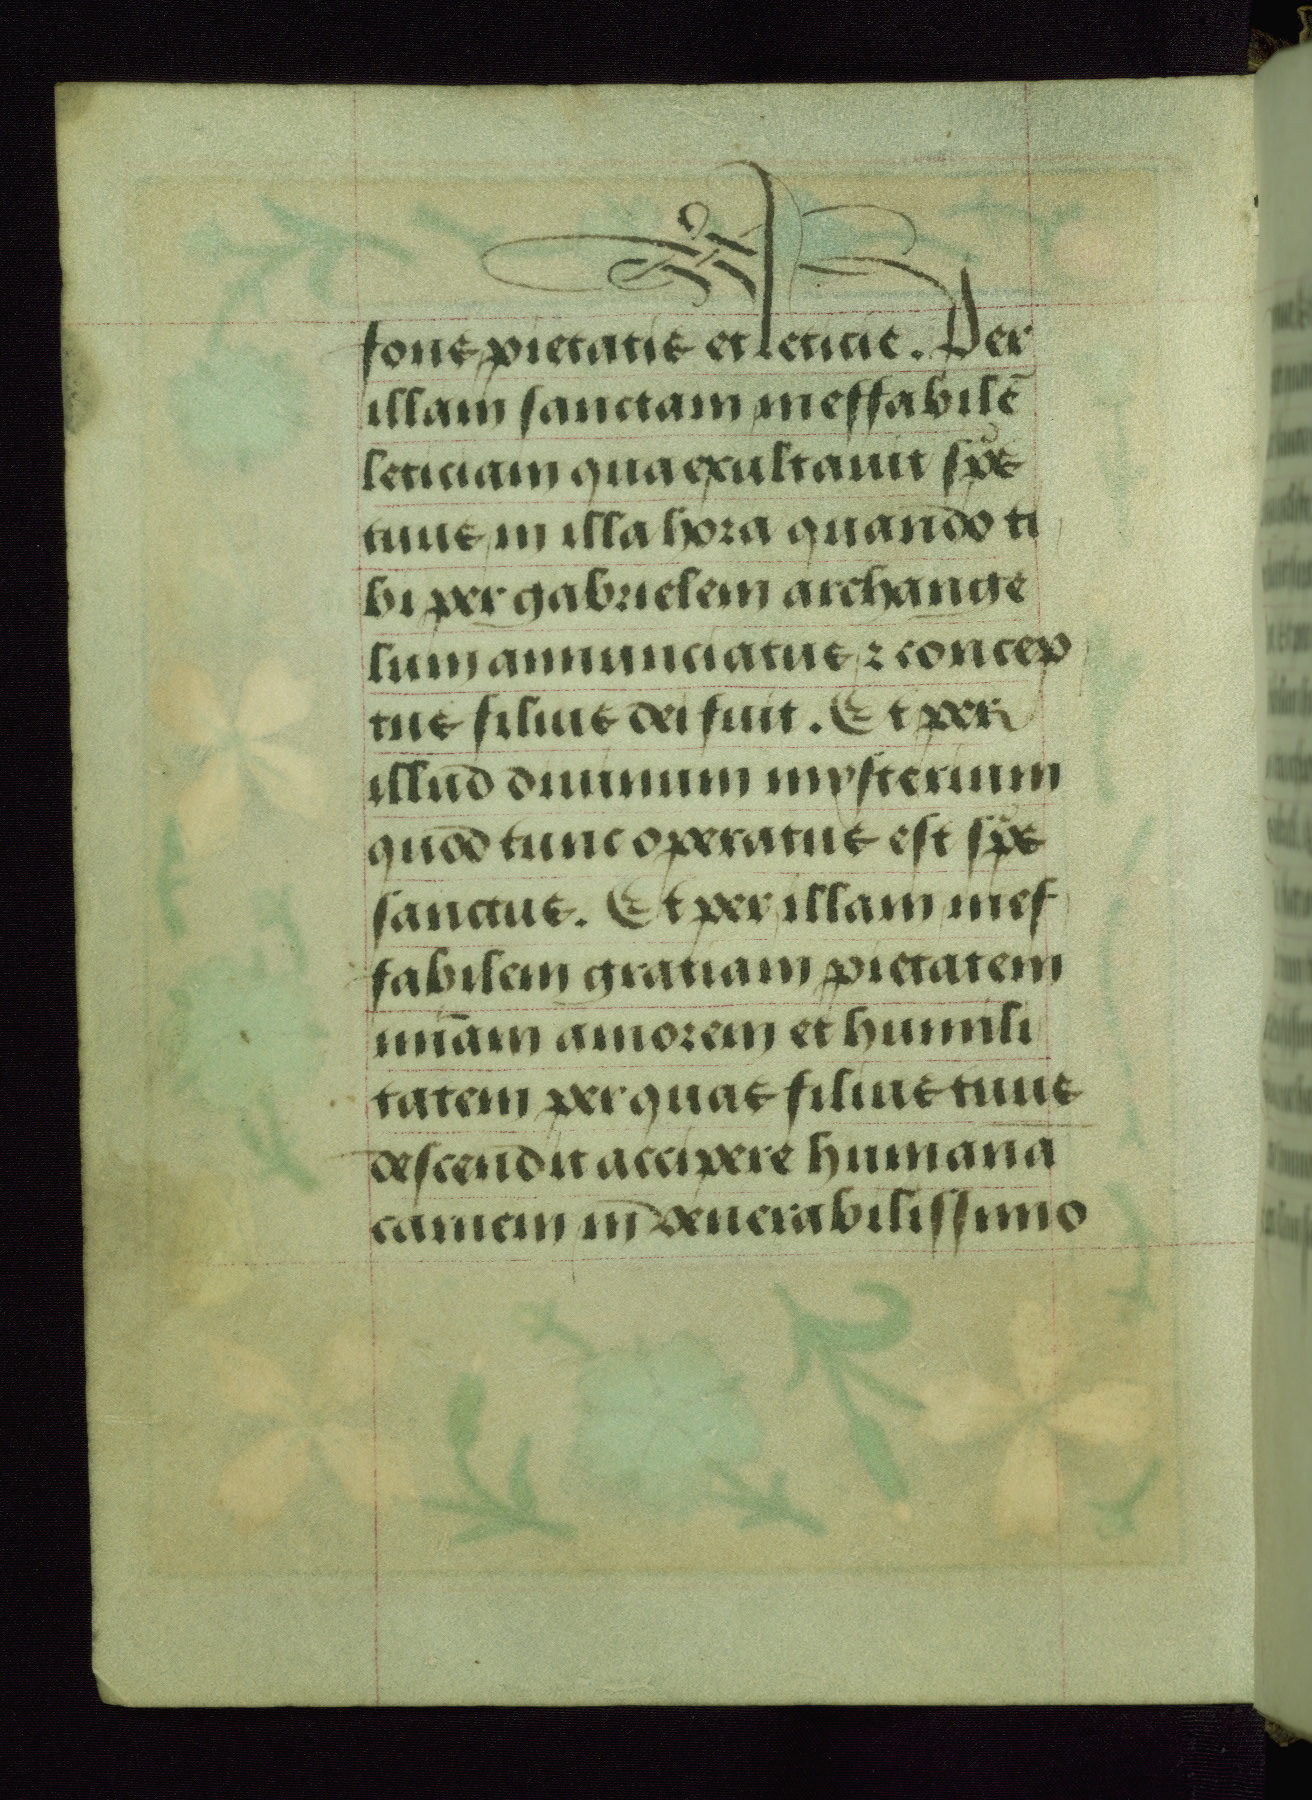 fons pietatis et leticie. Per
illam sanctam ineffabilē
leticiam qua exultauit sp̄s
tuus in illa hora quando ti
bi per gabrielem archange
lum annunciatus ⁊ concep
tus filius dei fuit. Et per
illud diuinum mysterium
quod tunc operatus est sp̄s
sanctus. Et per illam inef
fabilem gratiam pietatem
mīam amorem et humili
tatem per quas filius tuus
descendit accipere humanā
carnem in venerabilissimo